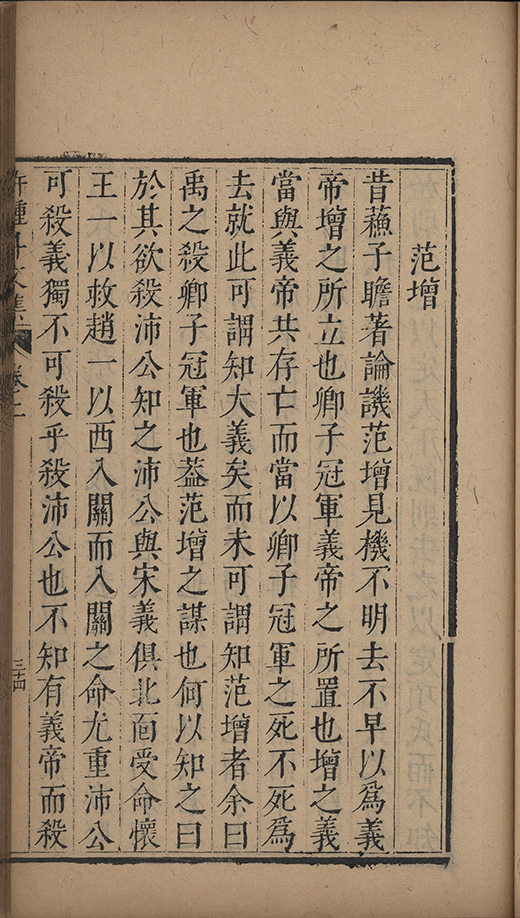 范增
昔蘓子瞻著論譏范增見機不明去不早以爲義
帝增之所立也卿子冠軍義帝之所置也增之義
當與義帝共存亡而當以卿子冠軍之死不死爲
去就此可謂知大義矣而未可謂知范增者余曰
禹之殺卿子冠軍也葢范增之謀也何以知之曰
於其欲殺沛公知之沛公與宋義俱北面受命懷
王一以救趙一以西入關而入關之命尤重沛公
可殺義獨不可殺乎殺沛公也不知有義帝而殺
許鍾斗文集 卷之二
三十四